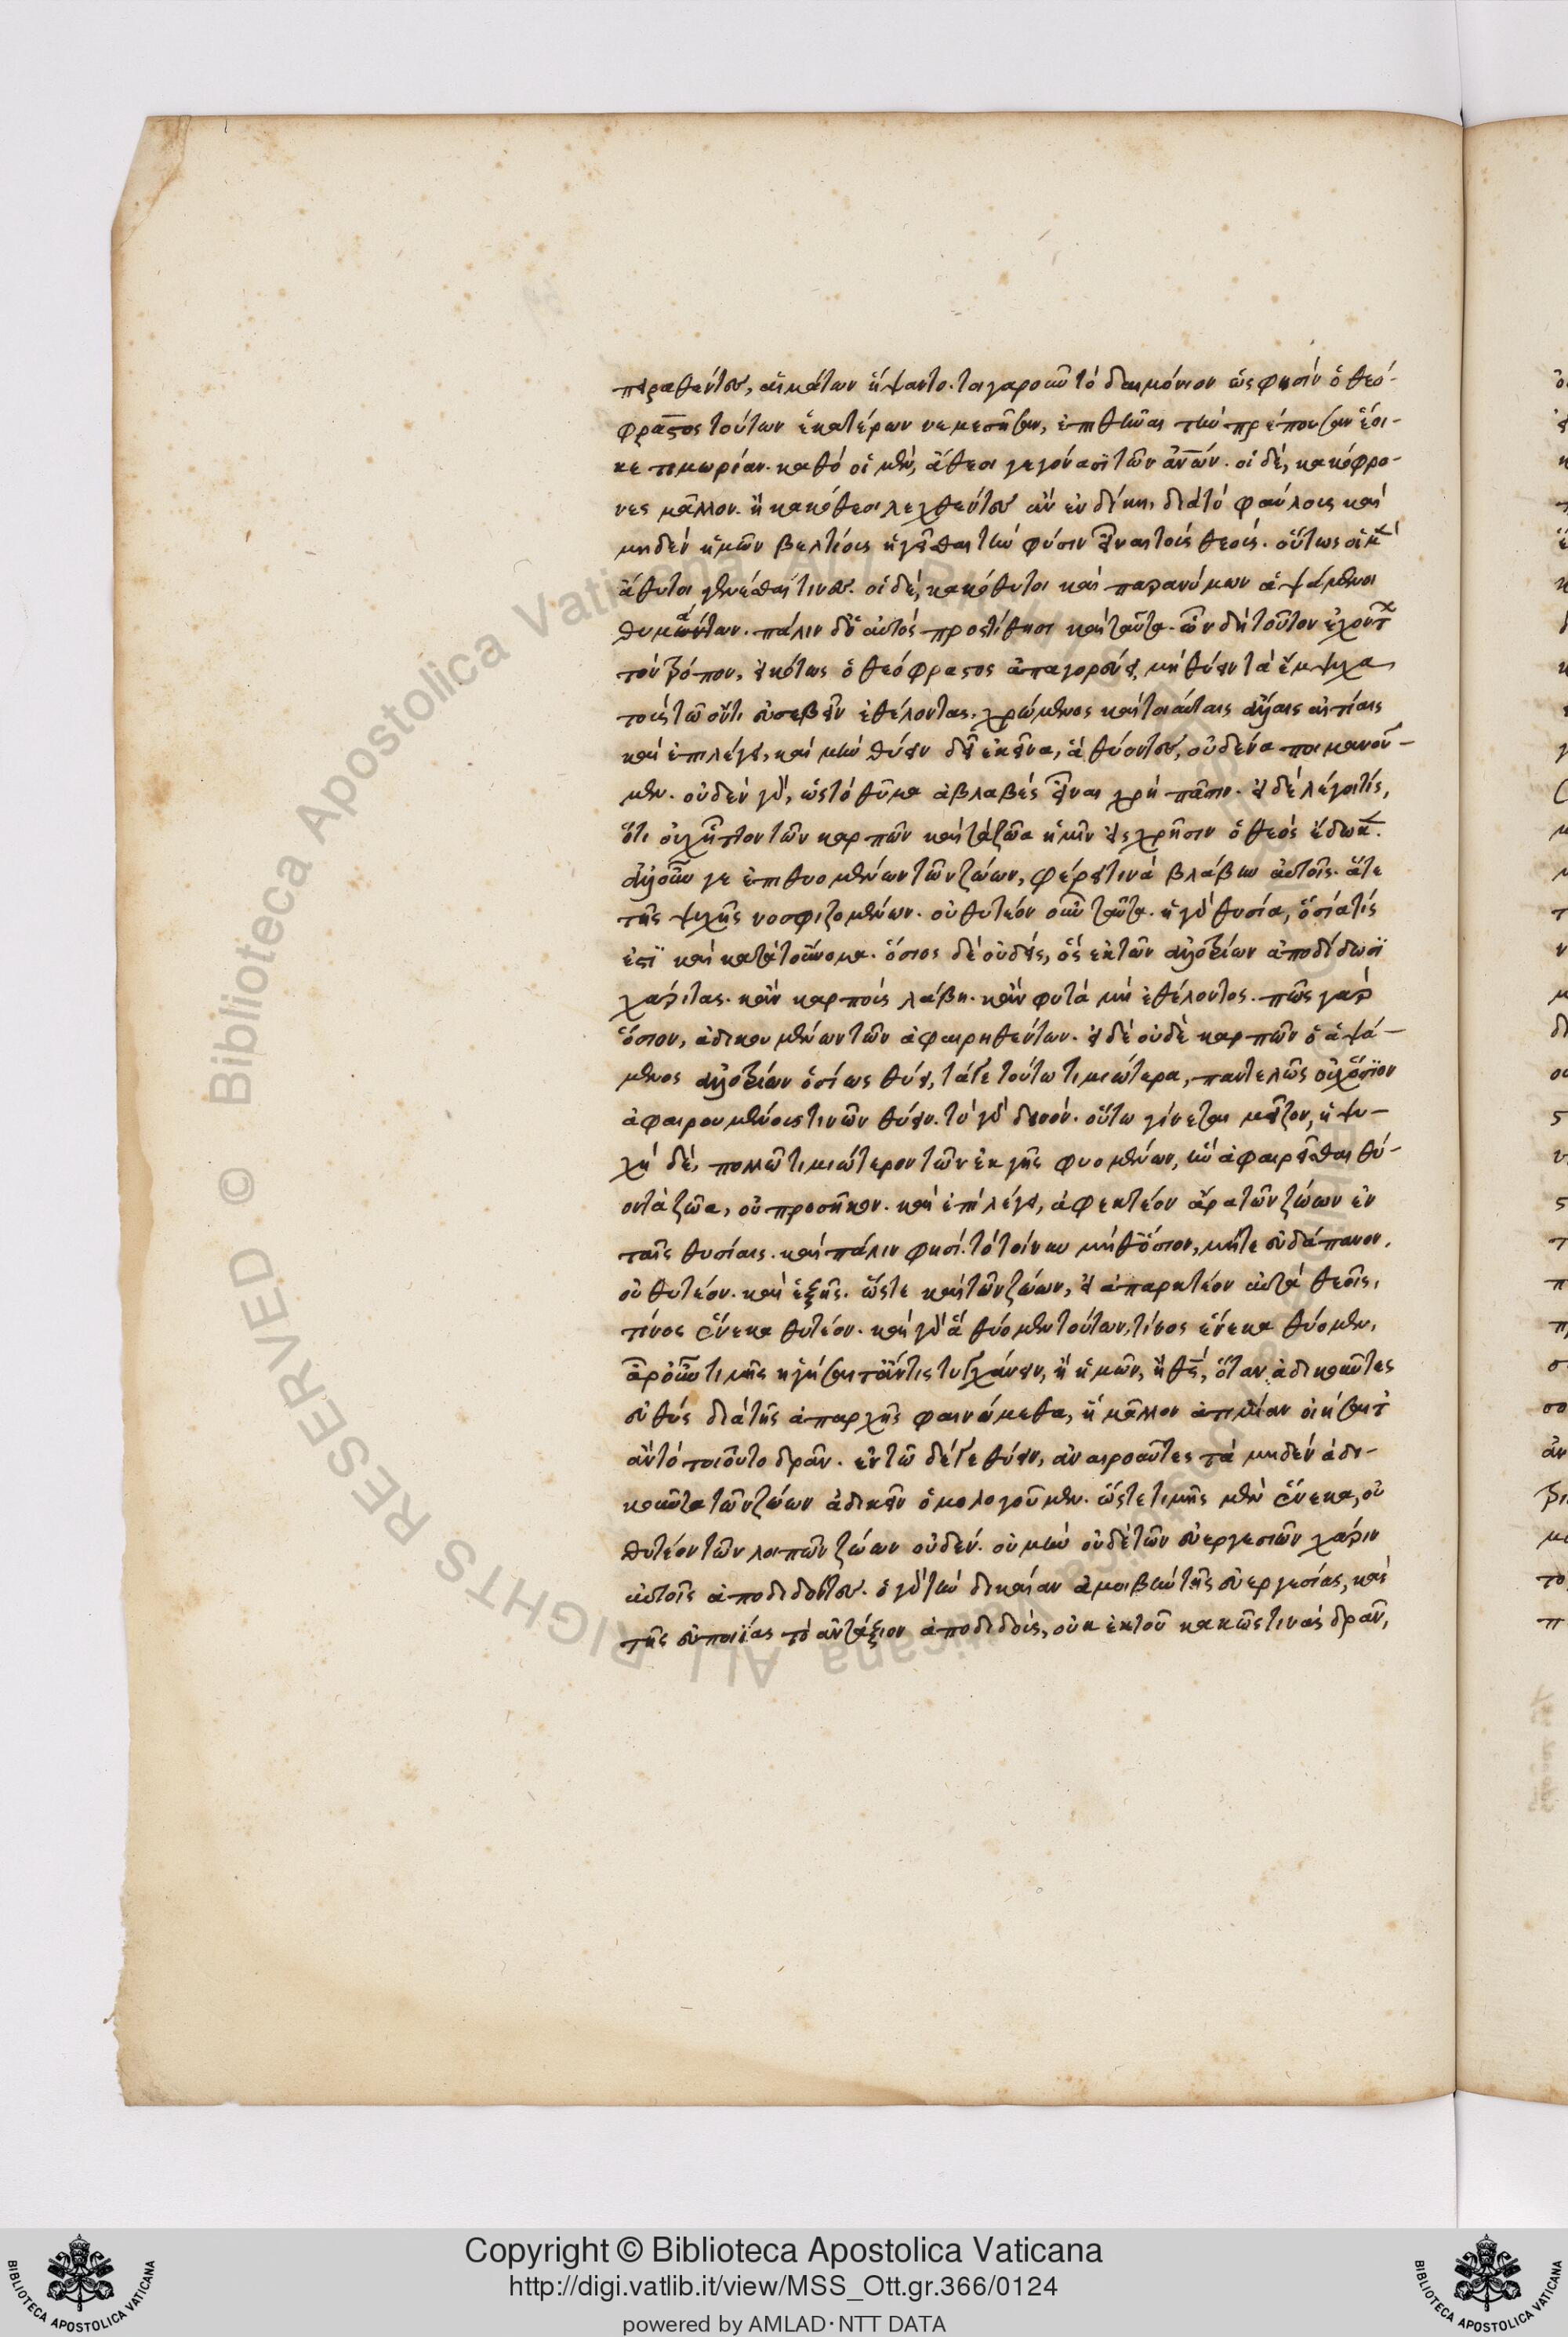 πειραθέντες, αἱμάτων ἥψαντο. τοιγαροῦν τὸ δαιμόνιον ὥς φησὶν ὁ θεό-
φραστος τούτων ἑκατέρων νεμεσῆσαν, ἐπιθεῖναι τὴν πρέπουσαν ἔοι-
κε τιμωρίαν. καθὸ οἱ μὲν, ἄθεοι γεγόνασι τῶν ἀνῶν. οἱ δὲ, κακόφρο-
νες μᾶλλον. ἢ κακόθεοι λεχθέντες ἂν ἐν δίκη, διὰ τὸ φαύλους καὶ
μηδὲν ἡμῶν βελτίους ἡγεῖσθαι τὴν φύσιν εἶναι τοὺς θεούς. οὕτως οἱ μὲν
ἄθυτοι γενέσθαι τινες. οἱ δὲ, κακόθυτοι καὶ παρανόμων ἁψάμενοι
θυμάτων. πάλιν δὲ αὐτὸς προστίθησι καὶ ταῦτα. ὧν δὴ τοῦτον ἐχόντων
τὸν τρόπον, εἰκότως ὁ θεόφραστος ἀπαγορεύει μὴ θύειν τὰ ἔμψυχα
τοὺς τῶ ὄντι εὐσεβεῖν ἐθέλοντας. χρώμενος καὶ τοιαύταις ἄλλαις αἰτίαις
καὶ ἐπιλέγει, καὶ μὴν θύειν δεῖ ἐκεῖνα, ἃ θύοντες, οὐδένα πημανοῦ-
μεν. οὐδὲν γὰρ, ὡς τὸ θῦμα ἀβλαβὲς εἶναι χρὴ πᾶσιν. εἰ δὲ λέγοι τίς,
ὅτι οὐχ ἧττον τῶν καρπῶν καὶ τὰ ζῶα ἡμῖν εἰς χρῆσιν ὁ θεὸς ἔδωκεν.
ἀλλ' οὖν γε ἐπιθυομένων τῶν ζώων, φέρει τινὰ βλάβην αὐτοῖς. ἅτε
τῆς ψυχῆς νοσφιζομένων. οὐ θυτέον οὖν ταῦτα. ἡ γὰρ θυσία, ὁσία τίς
ἐστὶ καὶ κατὰ τοὔνομα. ὅσιος δὲ οὐδεὶς, ὃς ἐκ τῶν ἀλλοτρίων ἀποδίδωσι
χάριτας. κἂν καρποὺς λάβη. κἂν φυτὰ μὴ ἐθέλοντος. πῶς γὰρ
ὅσιον, ἀδικουμένων τῶν ἀφαιρηθέντων. εἰ δὲ οὐδὲ καρπῶν ὁ ἁψά-
μενος ἀλλοτρίων ὁσίως θύει, τά γε τούτω τιμιώτερα, παντελῶς οὐχ ὅσιον
ἀφαιρουμένους τινῶν θύειν. τὸ γὰρ δεινὸν. οὕτω γίνεται μεῖζον, ἡ ψυ-
χὴ δὲ, πολλῶ τιμιώτερον τῶν ἐκ γῆς φυομένων, ἣν ἀφαιρεῖσθαι θύ-
οντα ζῶα, οὐ προσῆκον. καὶ ἐπιλέγει, ἀφεκτέον ἄρα τῶν ζώων ἐν
ταῖς θυσίαις. καὶ πάλιν φησὶ. τὸ τοίνυν μήθ' ὅσιον, μήτε εὐδάπανον,
οὐ θυτέον. καὶ ἑξῆς. ὥστε καὶ τῶν ζώων, εἰ ἀπαρκτέον αὐτὰ θεοῖς,
τίνος ἕνεκα θυτέον. καὶ γὰρ ἃ θύομεν τούτων, τίνος ἕνεκα θύομεν,
ἆρ' οὖν τιμῆς ἡγήσαιτ' ἄν τις τυγχάνειν, ἢ ἡμῶν, ἢ θς, ὅταν ἀδικοῦντες
εὐθὺς διὰ τῆς ἀπαρχῆς φαινώμεθα, ἢ μᾶλλον ἀτιμίαν οἰήσαιτ'
ἂν τὸ τοιοῦτο δρᾶν. ἐν τῶ δέ γε θύειν, ἀναιροῦντες τὰ μηδὲν ἀδι-
κοῦντα τῶν ζώων ἀδικεῖν ὁμολογοῦμεν. ὥστε τιμῆς μὲν ἕνεκα, οὐ
θυτέον τῶν λοιπῶν ζώων οὐδέν. οὐ μὴν οὐδὲ τῶν εὐεργεσιῶν χάριν
αὐτοῖς ἀποδιδόντες. ὁ γὰρ τὴν δικαίαν ἀμοιβὴν τῆς εὐεργεσίας, καὶ
τῆς εὐποιίας τὸ ἀντάξιον ἀποδιδοὺς, οὐκ ἐκ τοῦ κακῶς τινὰς δρᾶν,
Copyright © Biblioteca Apostolica Vaticana
http://digi.vatlib.it/view/MSS_Ott.gr.366/0124
powered by AMLAD·NTT DATA